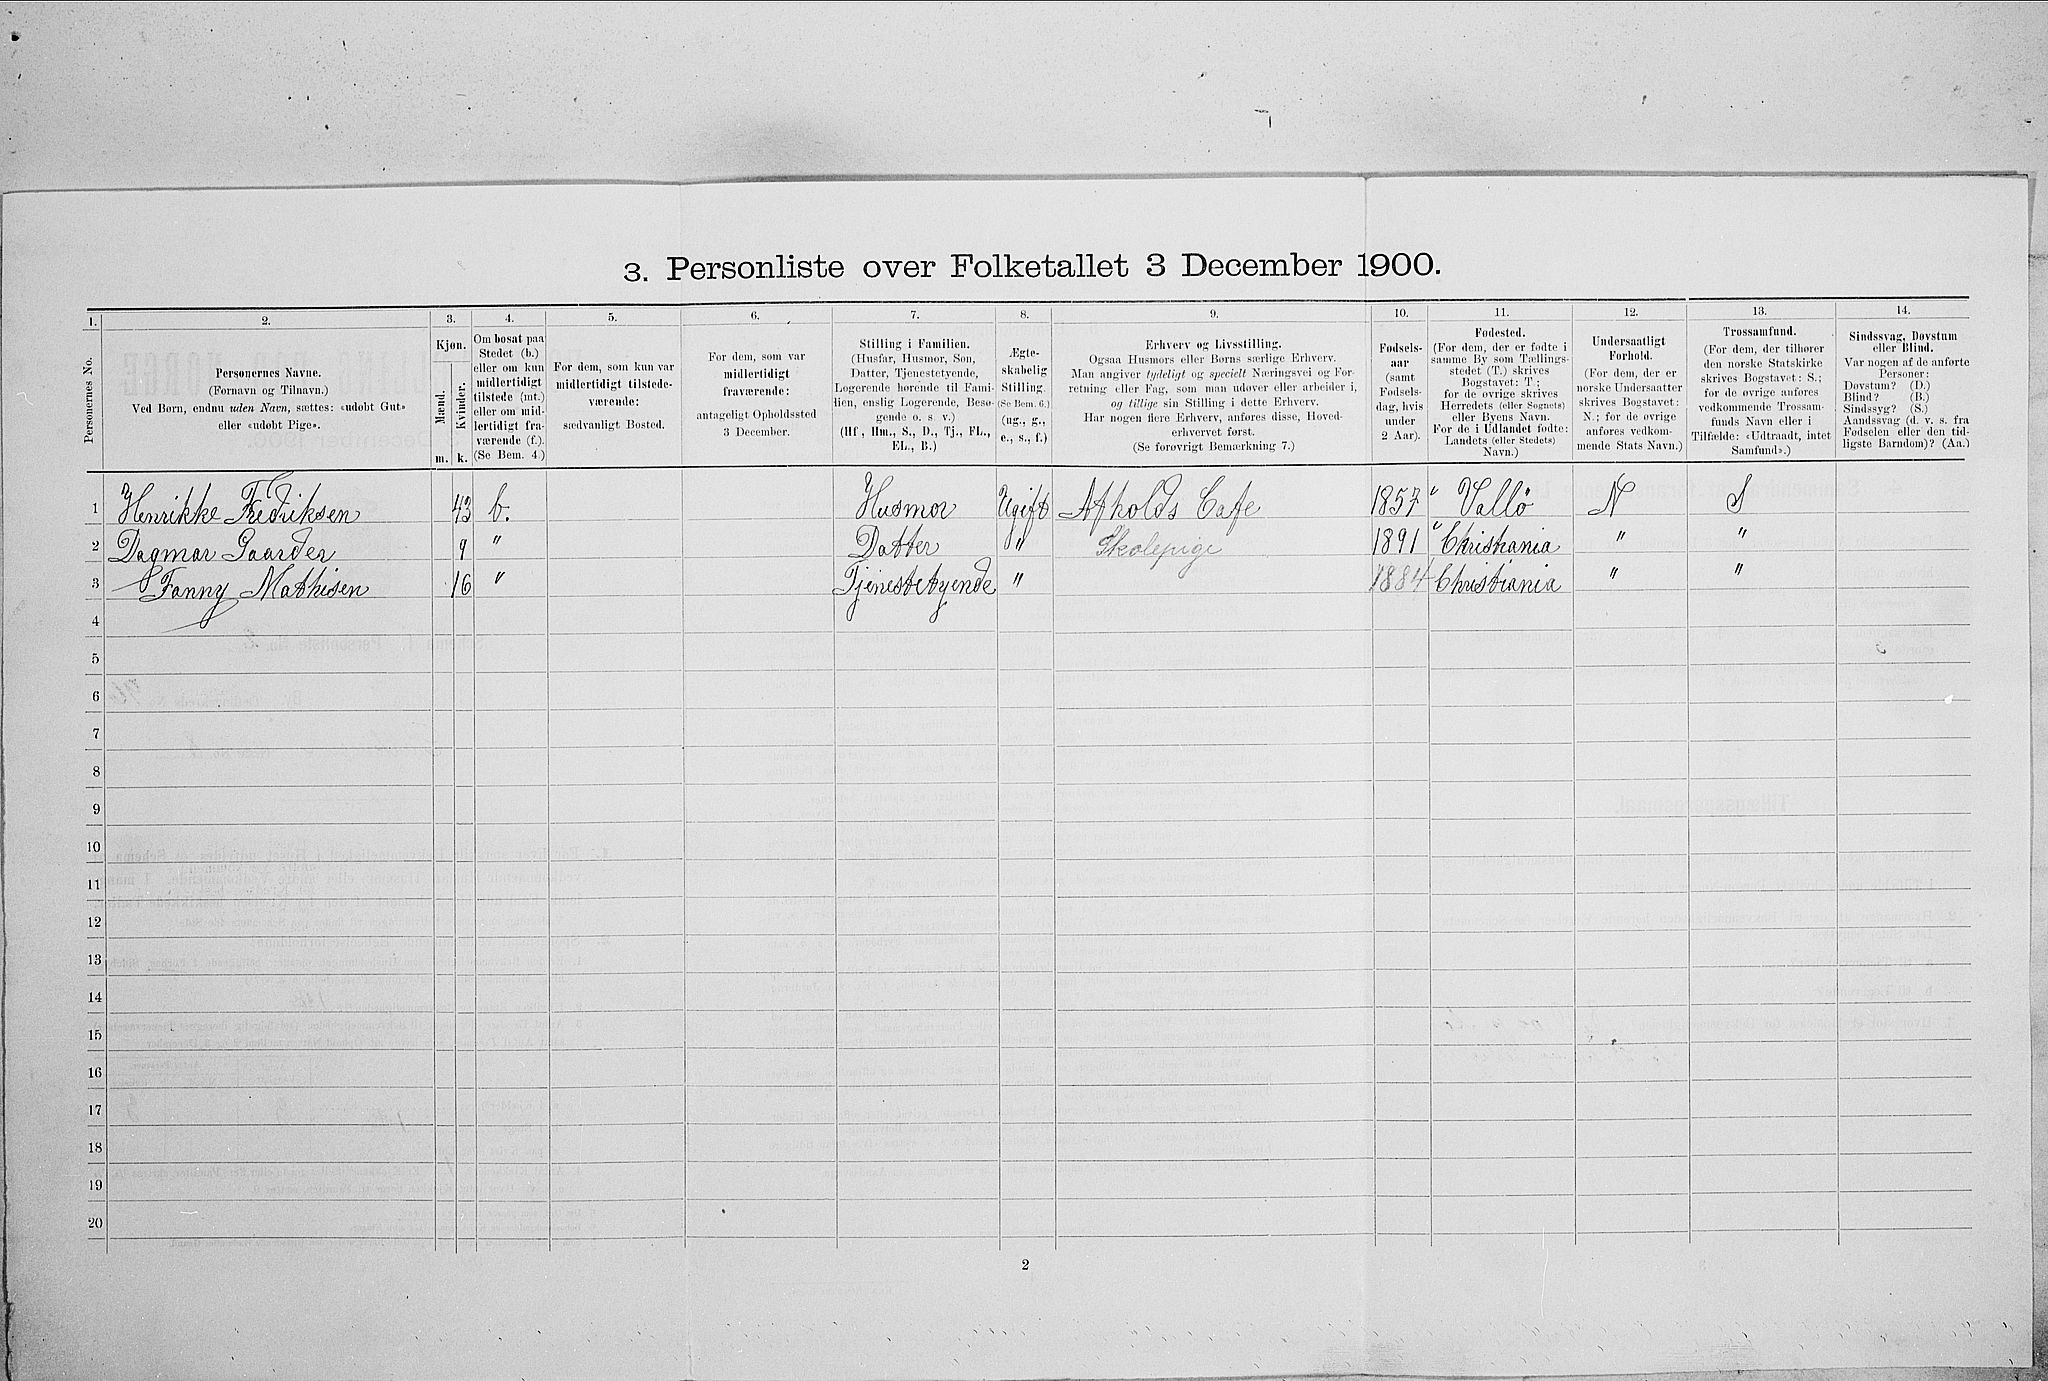 3. Personliste over Folketallet 3 December 1900.
1. 2. 3. 4. 5. 6. 7. 8. 9. 10. 11. 12. 13. 14.
Personernes No.
Personernes Navne.
(Fornavn og Tilnavn.)
Ved Børn, endnu uden Navn, sættes: «udøbt Gut»
eller «udøbt Pige».
Kjøn.
Mænd.
Kvinder.
m. k.
Om bosat paa
Stedet (b.)
eller om kun
midlertidigt
tilstede (mt.)
eller om mid-
lertidigt fra-
værende (f.).
(Se Bem. 4.)
For dem, som kun var
midlertidigt tilstede-
værende:
sædvanligt Bosted.
For dem, som var
midlertidigt
fraværende:
antageligt Opholdssted
3 December.
Stilling i Familien.
(Husfar, Husmor, Søn,
Datter, Tjenestetyende,
Logerende hørende til Fami-
lien, enslig Logerende, Besø-
gende o. s. v.)
(Hf, Hm., S., D., Tj., FL.,
EL., B.)
Ægte-
skabelig
Stilling.
(Se Bem. 6.)
(ug., g.,
e., s., f.)
Erhverv og Livsstilling.
Ogsaa Husmors eller Børns særlige Erhverv.
Man angiver tydeligt og specielt Næringsvei og For-
retning eller Fag, som man udøver eller arbeider i,
og tillige sin Stilling i dette Erhverv.
Har nogen flere Erhverv, anføres disse, Hoved-
erhvervet først.
(Se forøvrigt Bemærkning 7.)
Fødsels-
aar
(samt
Fødsels-
dag, hvis
under
2 Aar).
Fødested.
(For dem, der er fødte i
samme By som Tællings-
stedet (T.) skrives
Bogstavet: T.;
for de øvrige skrives
Herredets (eller Sognets)
eller Byens Navn.
For de i Udlandet fødte:
Landets (eller Stedets)
Navn.)
Undersaatligt
Forhold.
(For dem, der er
norske Undersaatter
skrives Bogstavet:
N.; for de øvrige
anføres vedkom-
mende Stats Navn.)
Trossamfund.
(For dem, der tilhører
den norske Statskirke
skrives Bogstavet: S.;
for de øvrige anføres
vedkommende Trossam-
funds Navn eller i
Tilfælde: «Udtraadt, intet
Samfund».)
Sindssvag, Døvstum
eller Blind.
Var nogen af de anførte
Personer:
Døvstum? (D.)
Blind? (B.)
Sindssyg? (S.)
Aandssvag (d. v. s. fra
Fødselen eller den tid-
ligste Barndom)? (Aa.)
1 Henrikke Fredriksen 43 b. Husmor Ugift Afholds Cafe 1857 Vallø N S
2 Dagmar Gaarder 9 " Datter " Skolepige 1891 Christiania " "
3 Fanny Mathisen 16 " Tjenestetyende " 1884 Christiania " "
4
5
6
7
8
9
10
11
12
13
14
15
16
17
18
19
20
2